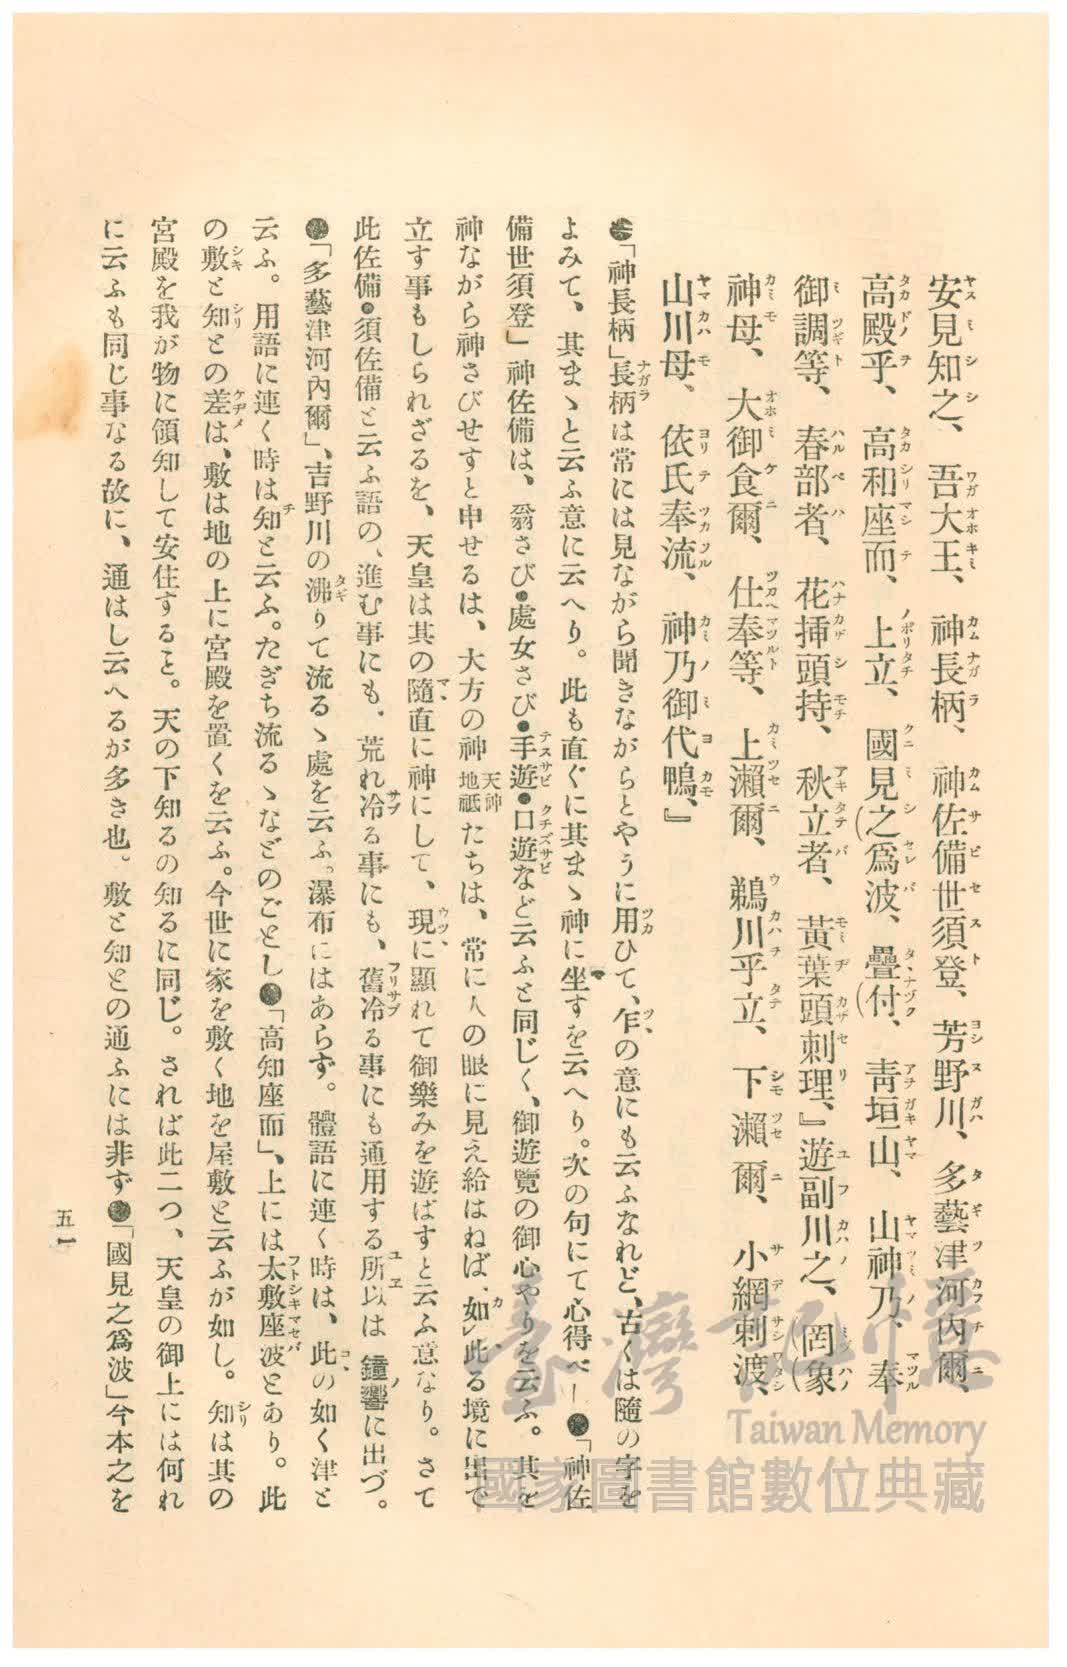 安見知之、吾大王、神長柄、神佐備世須登、芳野川、多藝津河內爾、
高殿乎、高知座而、上立、國見之爲波、疊付、青垣山、山神乃、奉
御調等、春部者、花挿頭持、秋立者、黃葉頭刺理、』遊副川之、(罔象
神母、大御食爾、仕奉等、上瀨爾、鵜川乎立、下瀨爾、小網刺渡、
山川母、依氐奉流、神乃御代鴨、』
●「神長柄」長柄は常には見ながら聞きながらとやうに用ひて、乍の意にも云ふなれど、古くは隨の字を
よみて、其まゝと云ふ意に云へり。此も直ぐに其まゝ神に坐すを云へり。次の句にて心得べし●「神佐
備世須登」神佐備は、翁さび●處女さび●手遊●口遊など云ふと同じく、御遊覽の御心やりを云ふ。其を
神ながら神さびせすと申せるは、大方の神天神地祇たちは、常に人の眼に見え給はねば、如此る境に出で
立す事もしられざるを、天皇は其の隨直に神にして、現に顯れて御樂みを遊ばすと云ふ意なり。さて
此佐備●須佐備と云ふ語の、進む事にも、荒れ冷る事にも、舊冷る事にも通用する所以は鐘響に出づ。
●「多藝津河內爾」、吉野川の沸りて流るゝ處を云ふ。瀑布にはあらず。體語に連く時は、此の如く津と
云ふ。用語に連く時は知と云ふ。たぎち流るゝなどのごとし●「高知座而」、上には太敷座波とあり。此
の敷と知との差は、敷は地の上に宮殿を置くを云ふ。今世に家を敷く地を屋敷と云ふが如し。知は其の
宮殿を我が物に領知して安住すること。天の下知るの知るに同じ。されば此二つ、天皇の御上には何れ
に云ふも同じ事なる故に、通はし云へるが多き也。敷と知との通ふには非ず●「國見之爲波」今本之を
五一
臺灣記憶
Taiwan Memory
國家圖書館數位典藏